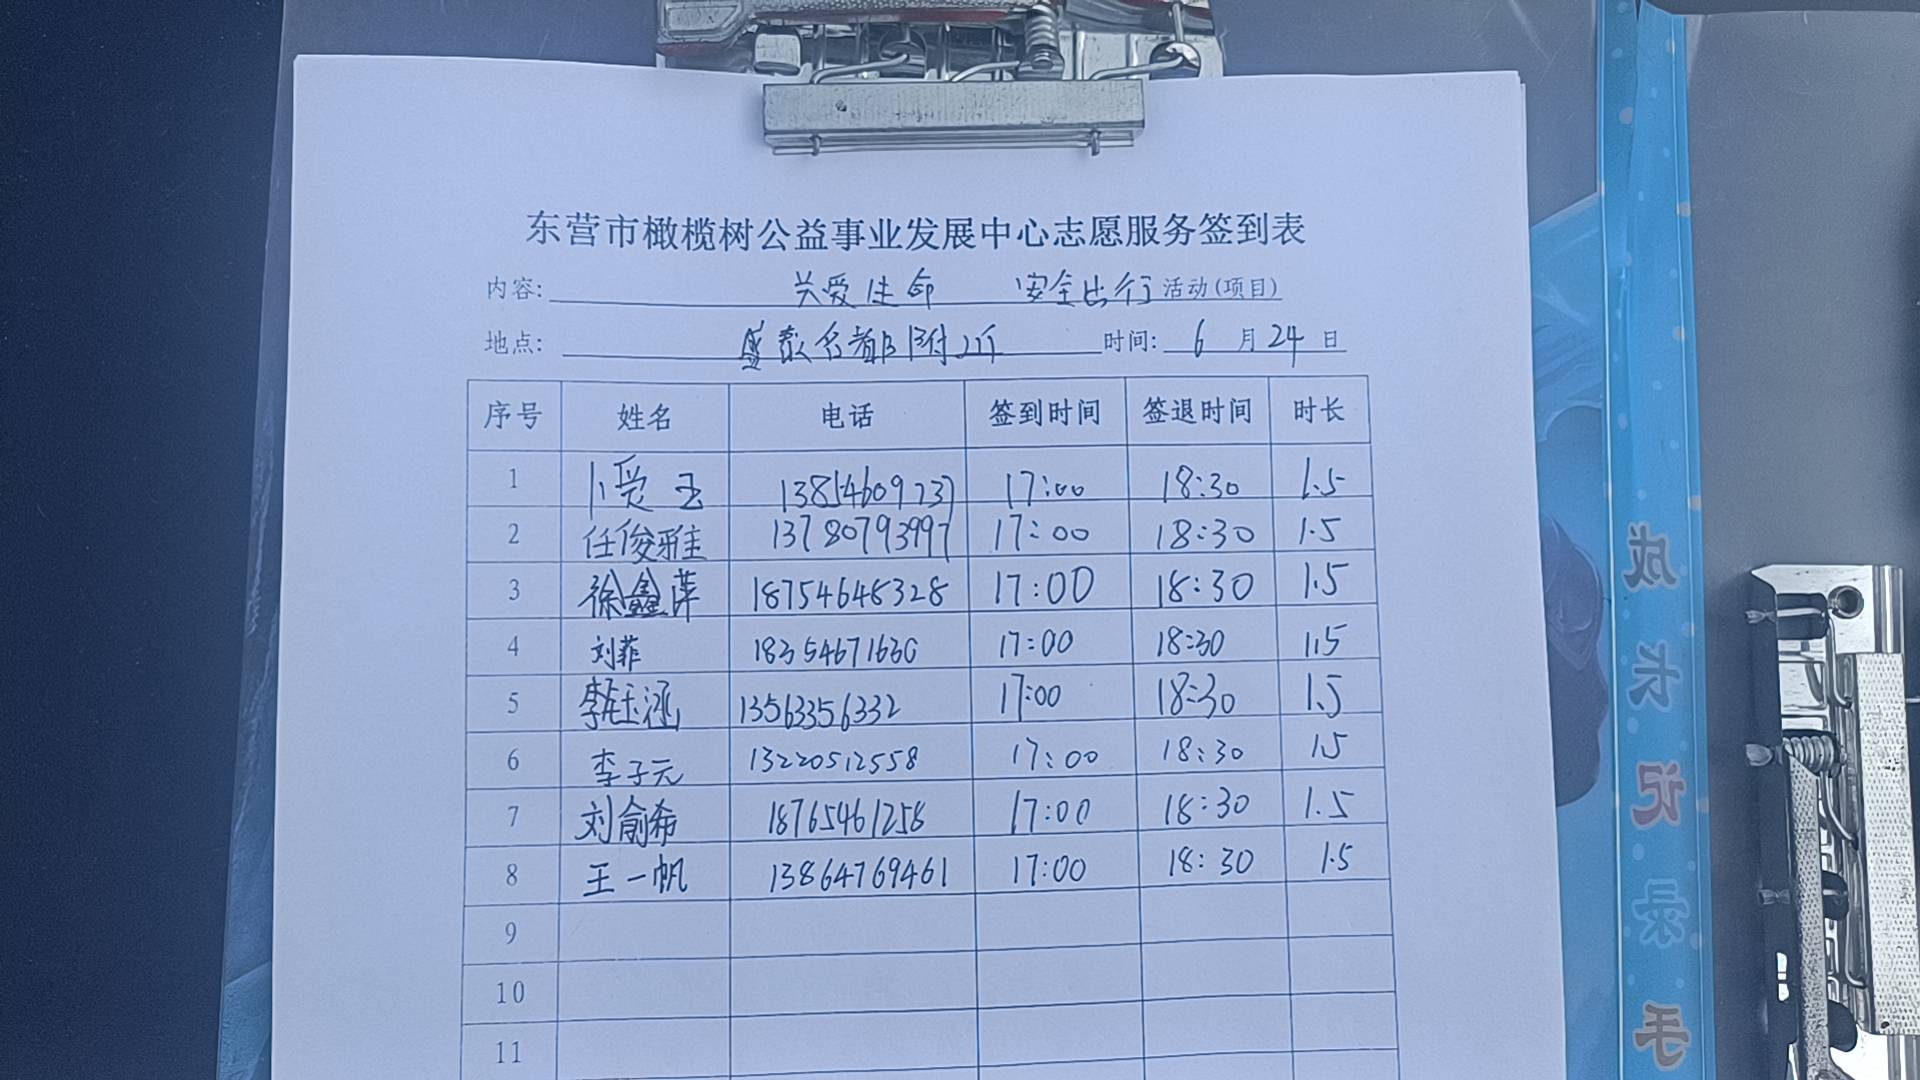 东营市橄榄树公益事业发展中心志愿服务签到表
内容: 关爱生命 安全出行 活动(项目)
地点: 盛泰名都附近 时间: 6 月 24 日
序号 姓名 电话 签到时间 签退时间 时长
1 卜爱玉 13854609737 17:00 18:30 1.5
2 任俊雅 13780793997 17:00 18:30 1.5
3 徐鑫萍 18754648328 17:00 18:30 1.5
4 刘菲 18354671630 17:00 18:30 1.5
5 李钰涵 13563356332 17:00 18:30 1.5
6 李子元 13220512558 17:00 18:30 1.5
7 刘俞希 18765461258 17:00 18:30 1.5
8 王一帆 13864769461 17:00 18:30 1.5
9
10
11
成长记录手